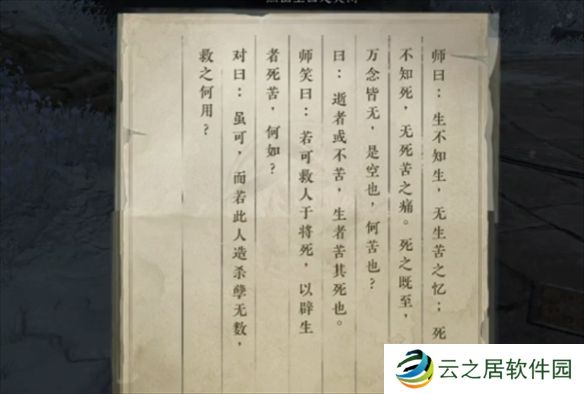 师曰：生不知生，无生苦之忆；死
不知死，无死苦之痛。死之既至，
万念皆无，是空也，何苦也？
曰：逝者或不苦，生者苦其死也。
师笑曰：若可救人于将死，以辟生
者死苦，何如？
对曰：虽可，而若此人造杀孽无数，
救之何用？
云之居软件园